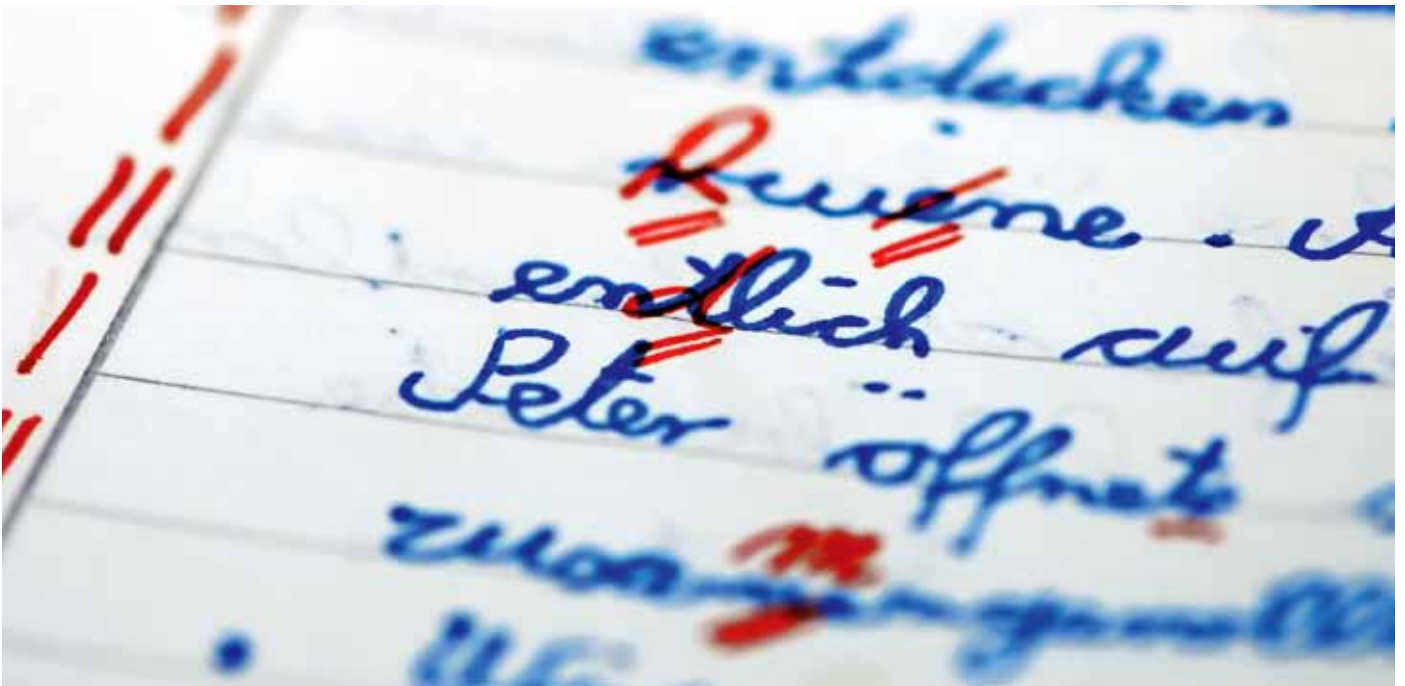 entdecken
Ruine.
endlich auf
Peter öffnet